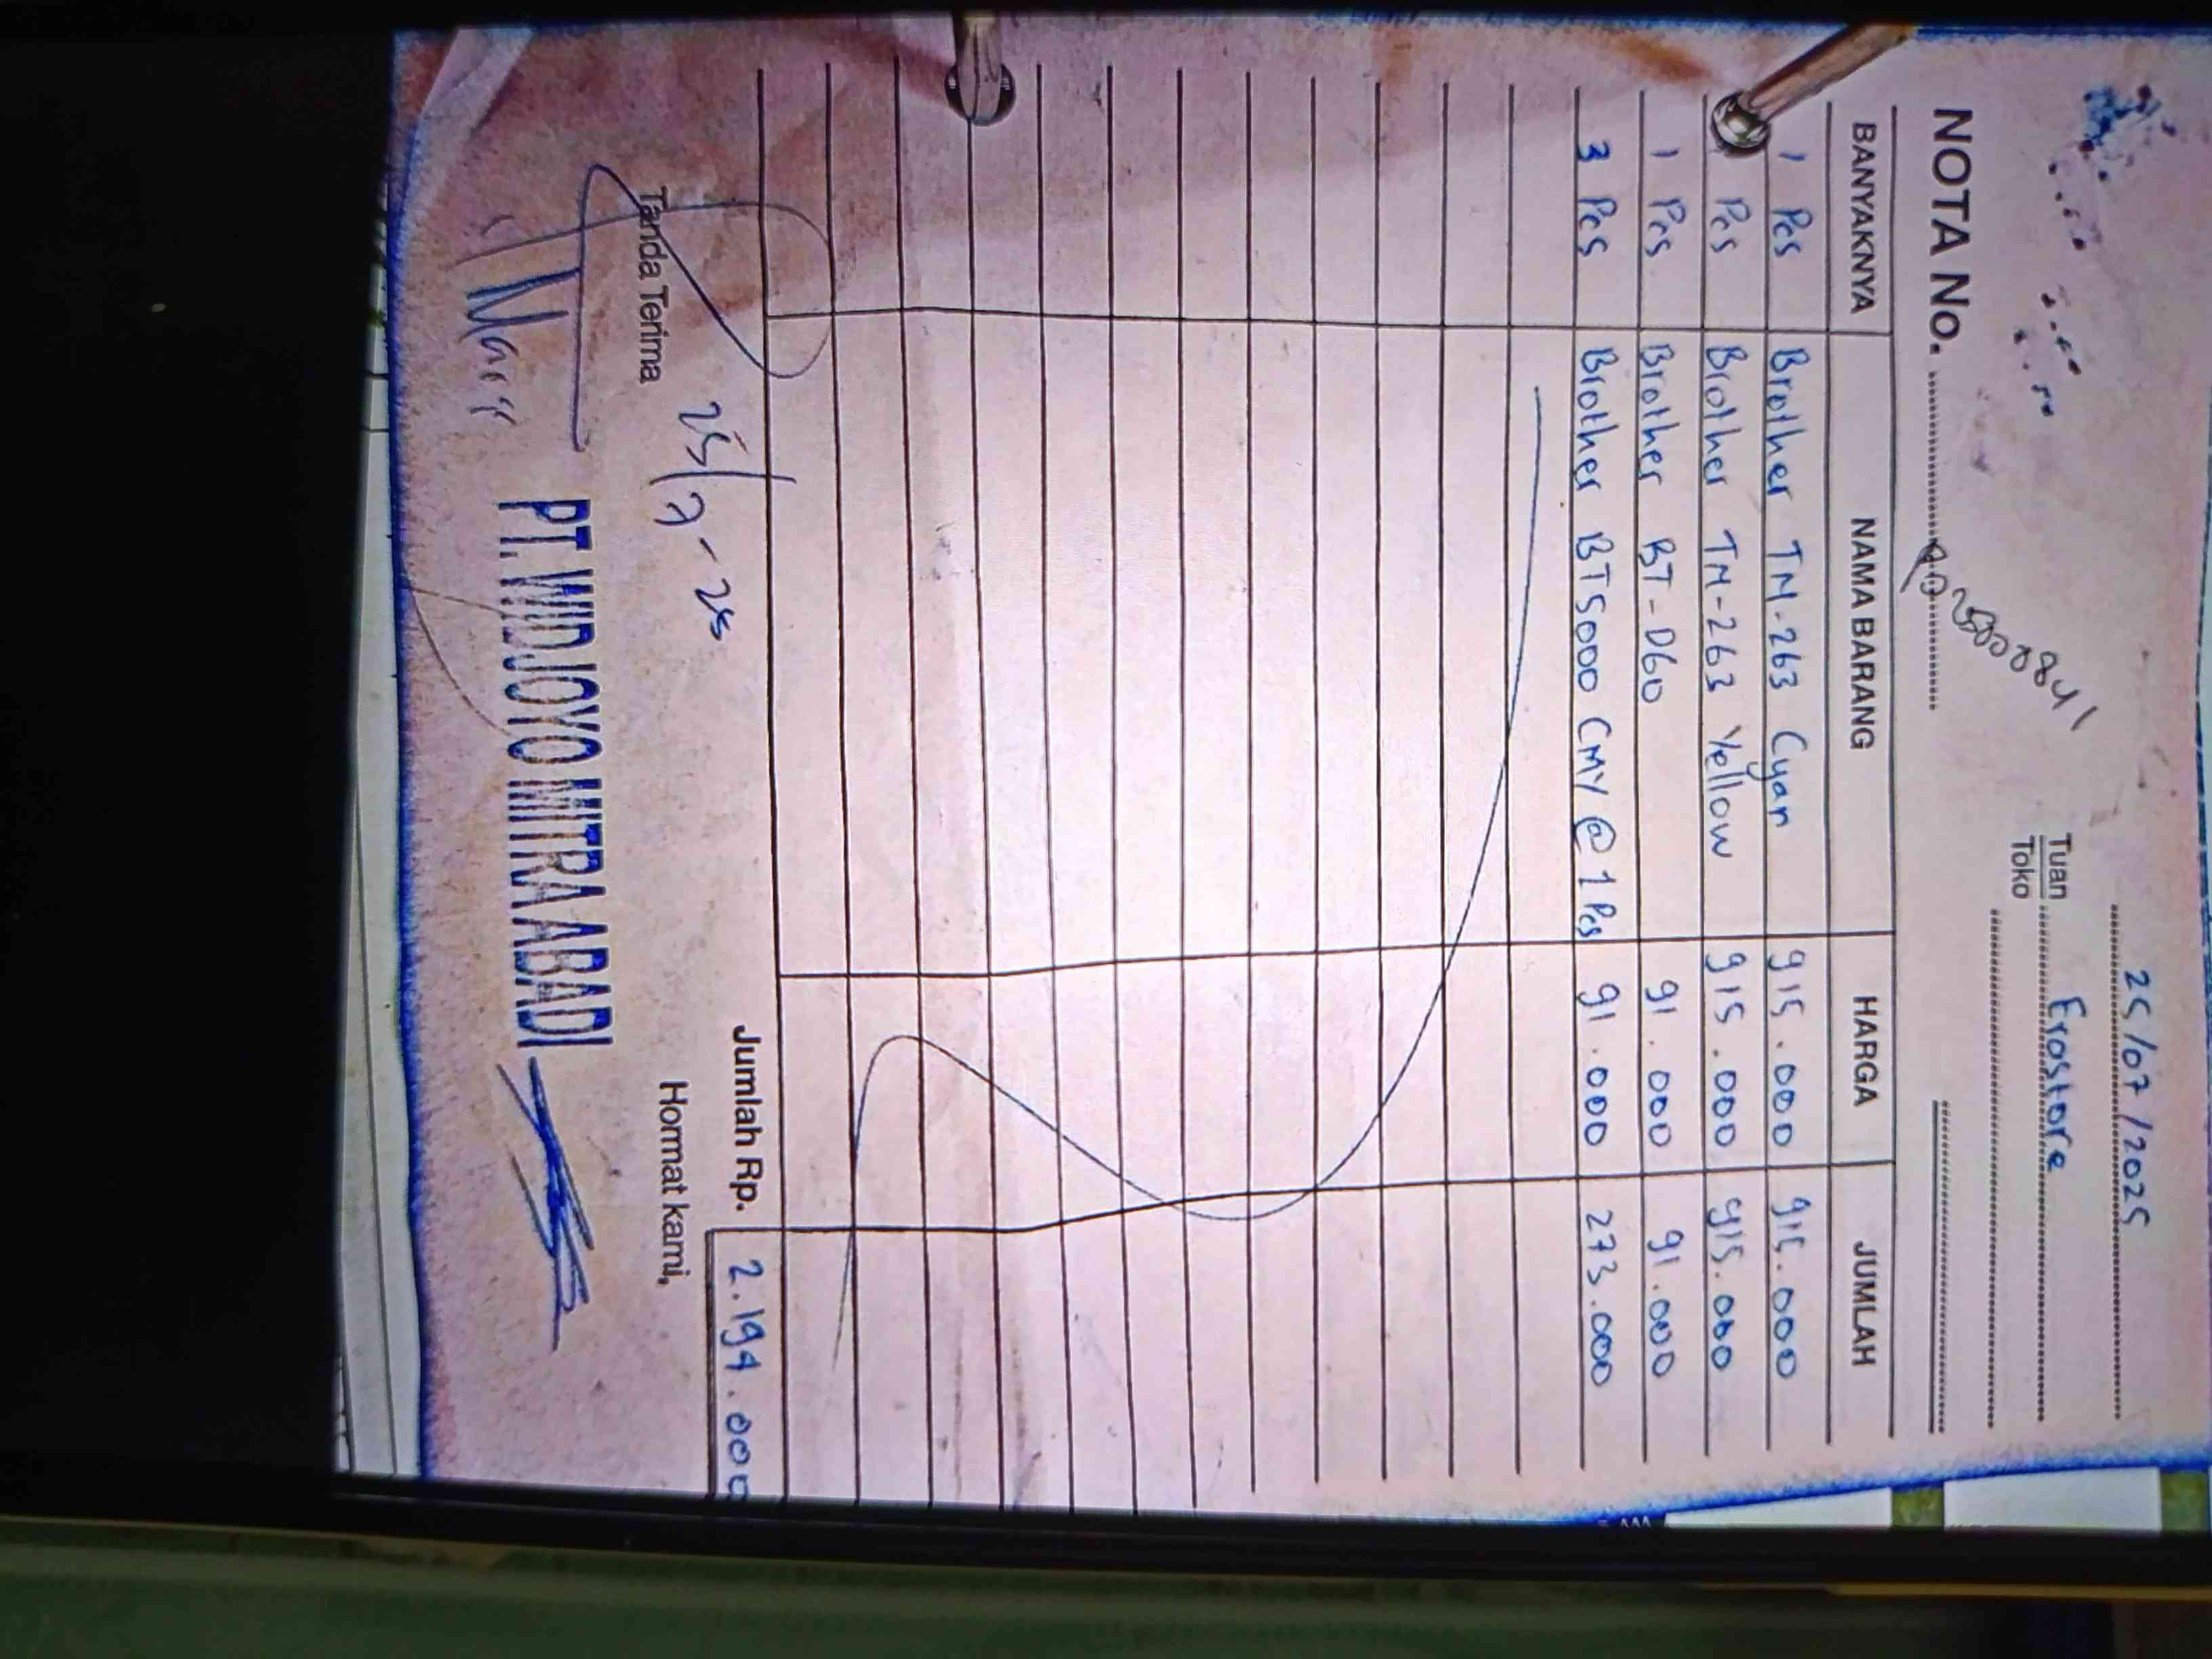 25/07/2025
Tuan Erostore
Toko
NOTA No.
BANYAKNYA NAMA BARANG HARGA JUMLAH
1 Pcs Brother TN-263 Cyan 915.000 915.000
Pcs Brother TN-263 Yellow 915.000 915.000
1 Pcs Brother BT-D60 91.000 91.000
3 Pcs Brother BT5000 CMY @ 1 Pcs 91.000 273.000
Jumlah Rp. 2.194.000
Tanda Terima 25/7-25 Hormat kami,
PT. WIDJOYO MITRA ABADI